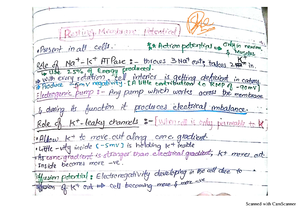 [Resting Membrane potential]
• Present in all cells.
* Action potential → Only in neurons, muscles
Role of Na⁺-K⁺ ATPase :- throws 3Na⁺ out, takes 2 K⁺ in.
• Use 25% of Energy produced.
• With every rotation, cell interior is getting deficient in cations
• Produce -5mv negativity. (A little contribution to RMP of -70mv)
Electrogenic pump :- Any pump which works across the membrane
& during its function it produces electrical imbalance.
Role of K⁺-leaky channels :- [... is only permeable to K]
• Allow K⁺ to move out along conc. gradient
• Little -vity inside (-5mv) is holding K⁺ inside
• As conc. gradient is stronger than electrical gradient, K⁺ moves out
• Inside becomes more -ve.
Diffusion potential : Electronegativity developing in the cell due to
diffusion of K⁺ out ⇒ cell becoming more & more -ve
Scanned with CamScanner